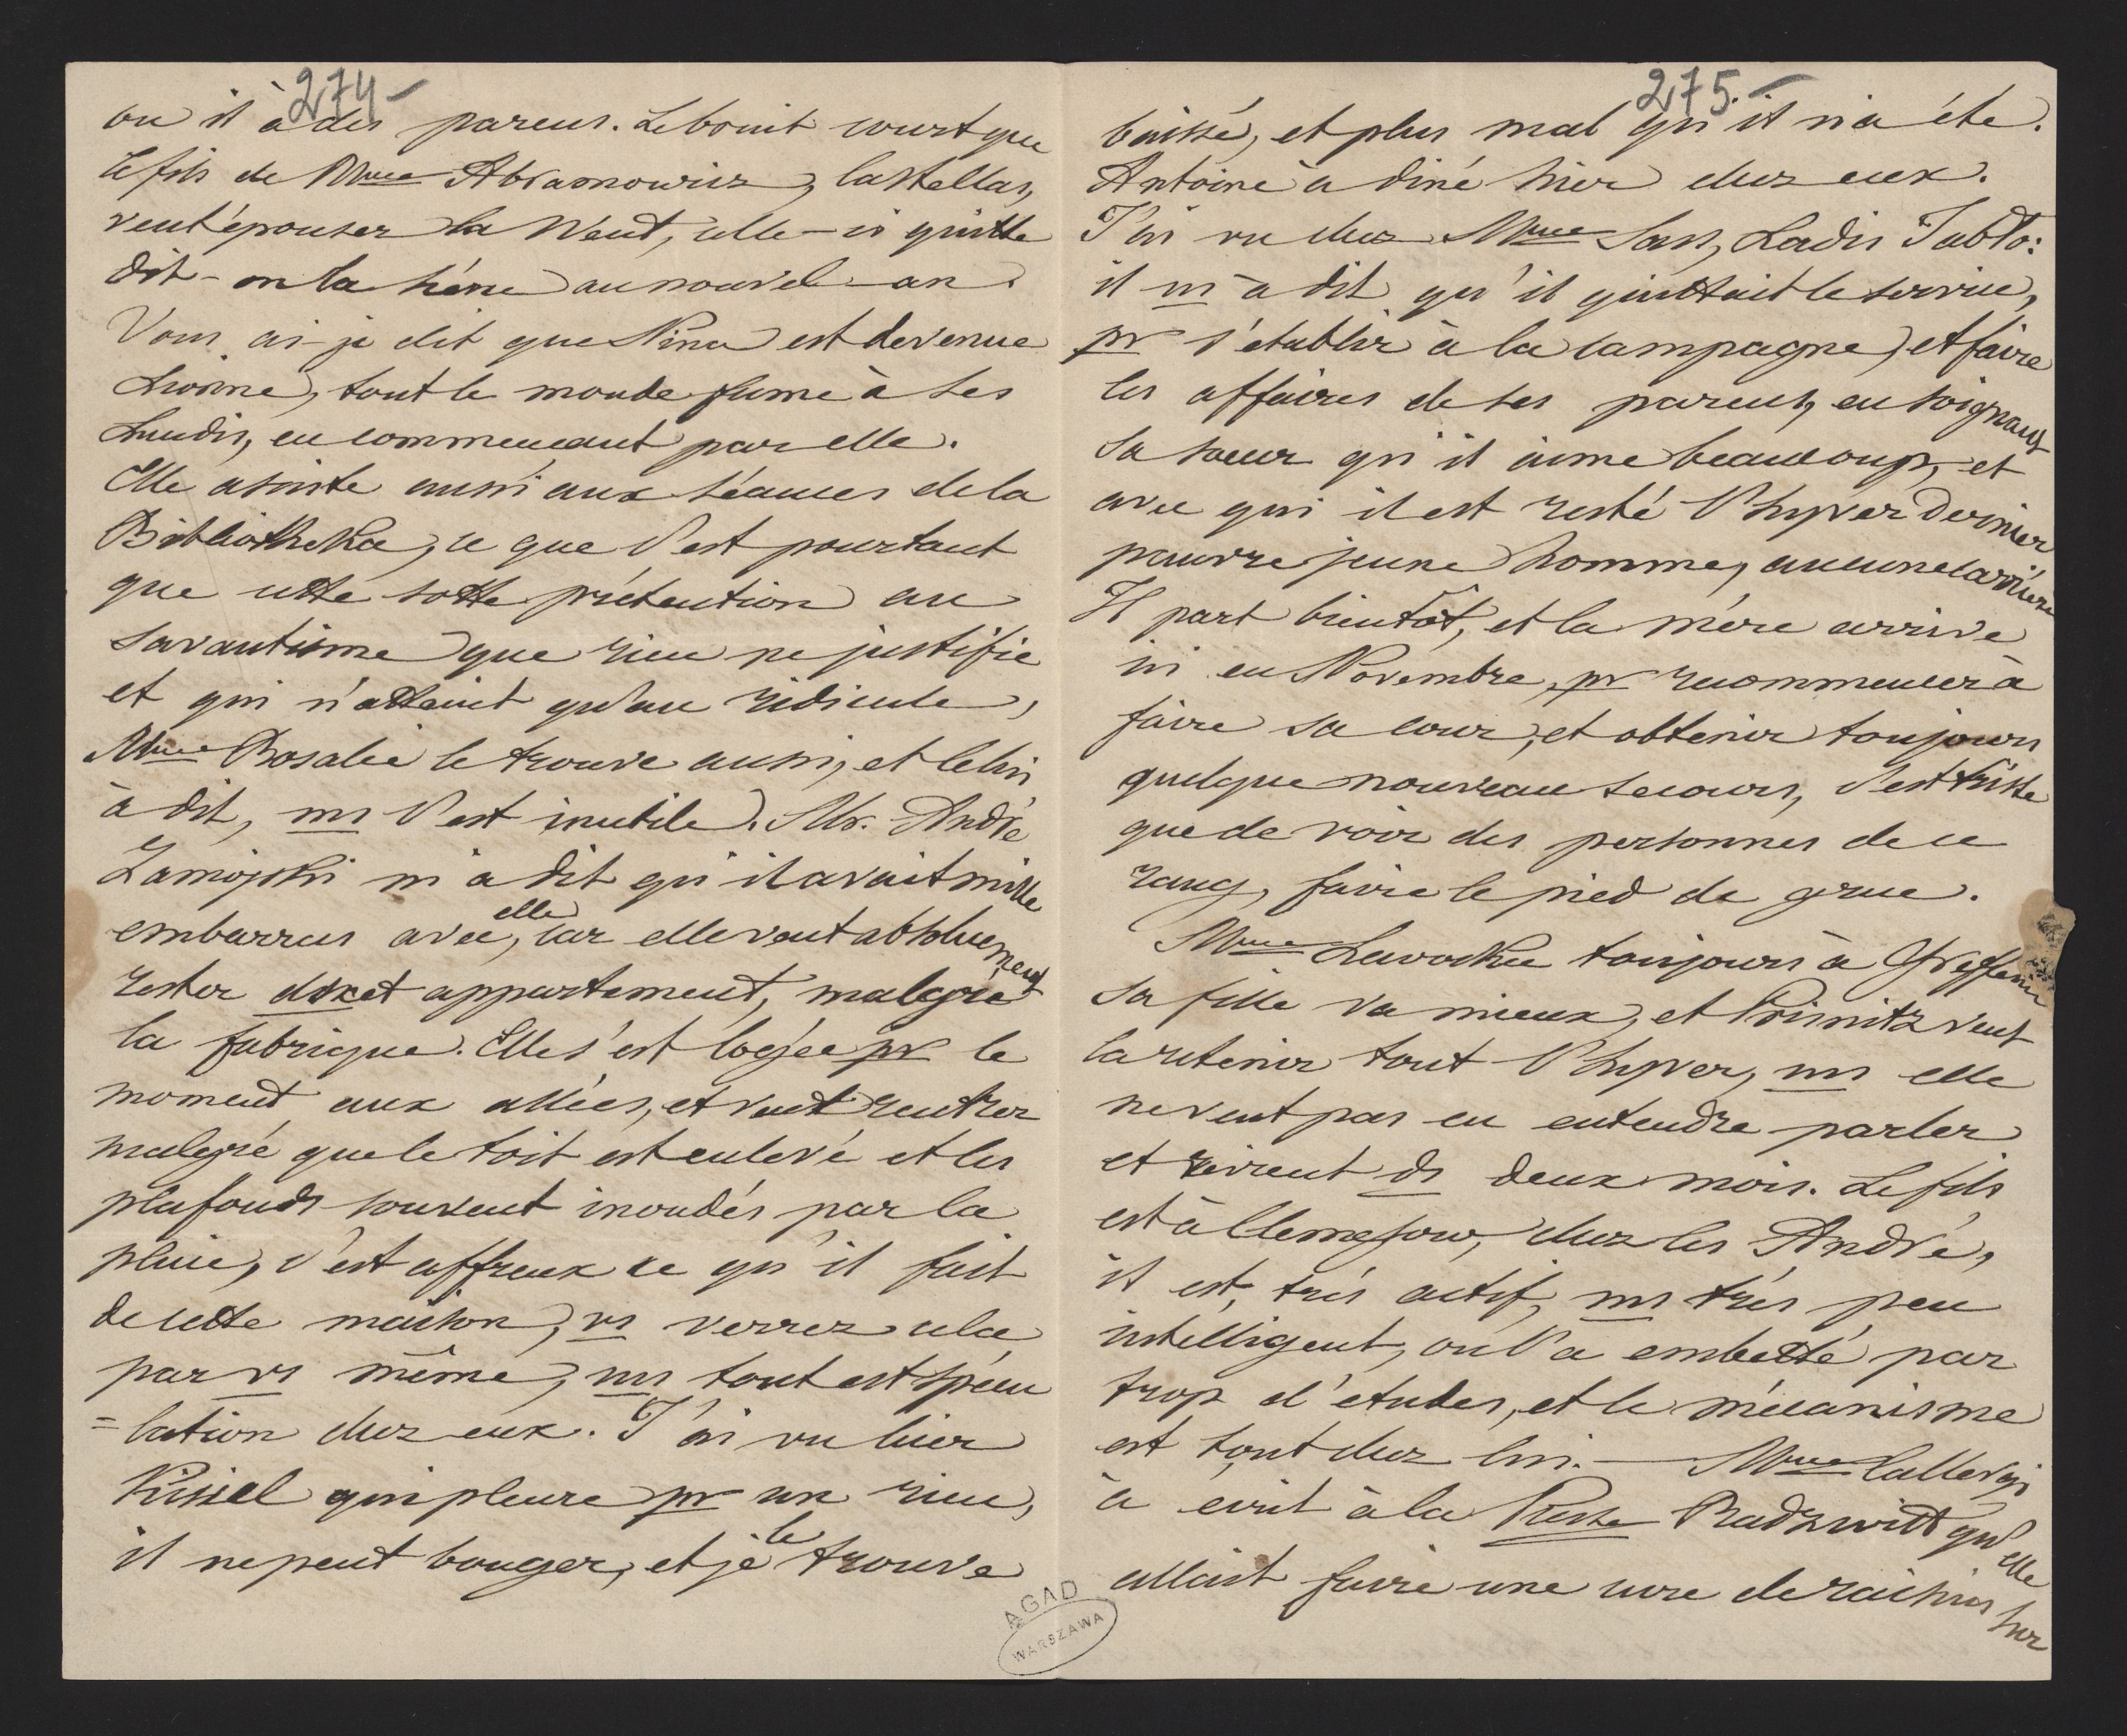 274-
ou il à des parens. Le bruit court que
le fils de Mme Abramowicz, Castellan,
veut épouser la Wendt, celle-ci quitte
dit-on la scène au nouvel-an.
Vous ai-je dit que Nina est devenue
Lionne, tout le monde fume à ses
Lundis, en commencant par elle.
Elle assiste aussi aux séances de la
Bibliotheka, ce que c'est pourtant
que cette sotte prétention au
savantisme que rien ne justifie
et qui n'atteint qu'au ridicule,
Mme Rosalie le trouve aussi, et le lui
à dit, ms c'est inutile. Mr. André
Zamojski m'a dit qu'il avait mille
embarras avec elle, car elle veut absolument
rester ds cet appartement, malgré
la fabrique. Elle s'est logée pr le
moment aux allées, et veut rentrer
malgré que le toit est enlevé et les
plafonds souvent inondés par la
pluie, c'est affreux ce qu'il fait
de cette maison, vs verrez cela
par vs même, ms tout est spécu
=lation chez eux. J'ai vu hier
Kissiel qui pleure pr un rien,
il ne peut bouger, et je le trouve
275.-
baissé, et plus mal qu'il n'a été.
Antoine à diné hier chez eux.
J'ai vu chez Mme Sass, Ladis Jabło:
il m'a dit qu'il quittait le service,
pr s'etablir à la campagne, et faire
les affaires de ses parens, en soignant
sa soeur qu'il aime beaucoup, et
avec qui il est resté l'hyver dernier
pauvre jeune homme, aucune carrière
Il part bientôt, et la mère arrive
ici en Novembre, pr recommencer à
faire sa cour, et obtenir toujours
quelque nouveau secours, c'est triste
que de voir des personnes de ce
rang, faire le pied de grue.
Mme Lewocka toujours à Greffen
sa fille va mieux, et Prisnitz veut
la retenir tout l'hyver, ms elle
ne veut pas en entendre parler
et revient ds deux mois. Le fils
est à Clemensow, chez les André,
il est très actif, ms très peu
intelligent, on l'a embetté par
trop d'études, et le mécanisme
est tout chez lui. — Mme Callergi
à ecrit à la Psse Radzwill qu'elle
allait faire une cure de raisins sur
AGAD
WARSZAWA